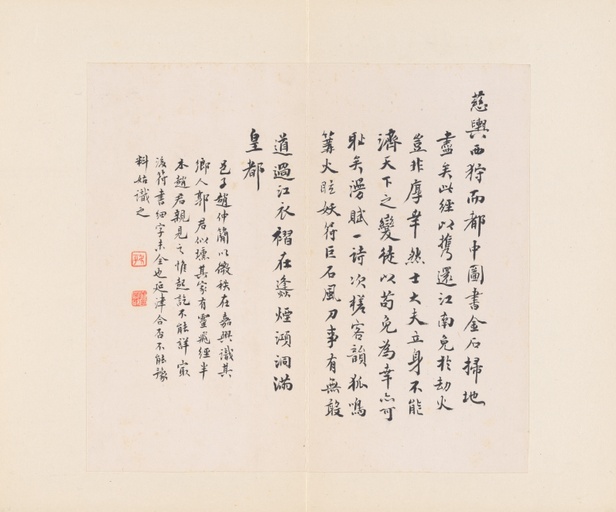 慈輿西狩而都中圖書金石掃地
盡矣此經以攜還江南免於劫火
豈非厚幸然士大夫立身不能
濟天下之變徒以苟免為幸亦可
恥矣漫賦一詩次槎客韻狐鳴
篝火眩妖符巨石風刀事有無敢
道過江衣褶在逢煙澒洞滿
皇都
邑子趙仲簡以微秩在嘉興識其
鄉人郭君似壎其家有靈飛經半
本趙君親見之惟敍訖不能詳最
後符書細字未全也延津合否不能豫
料姑識之